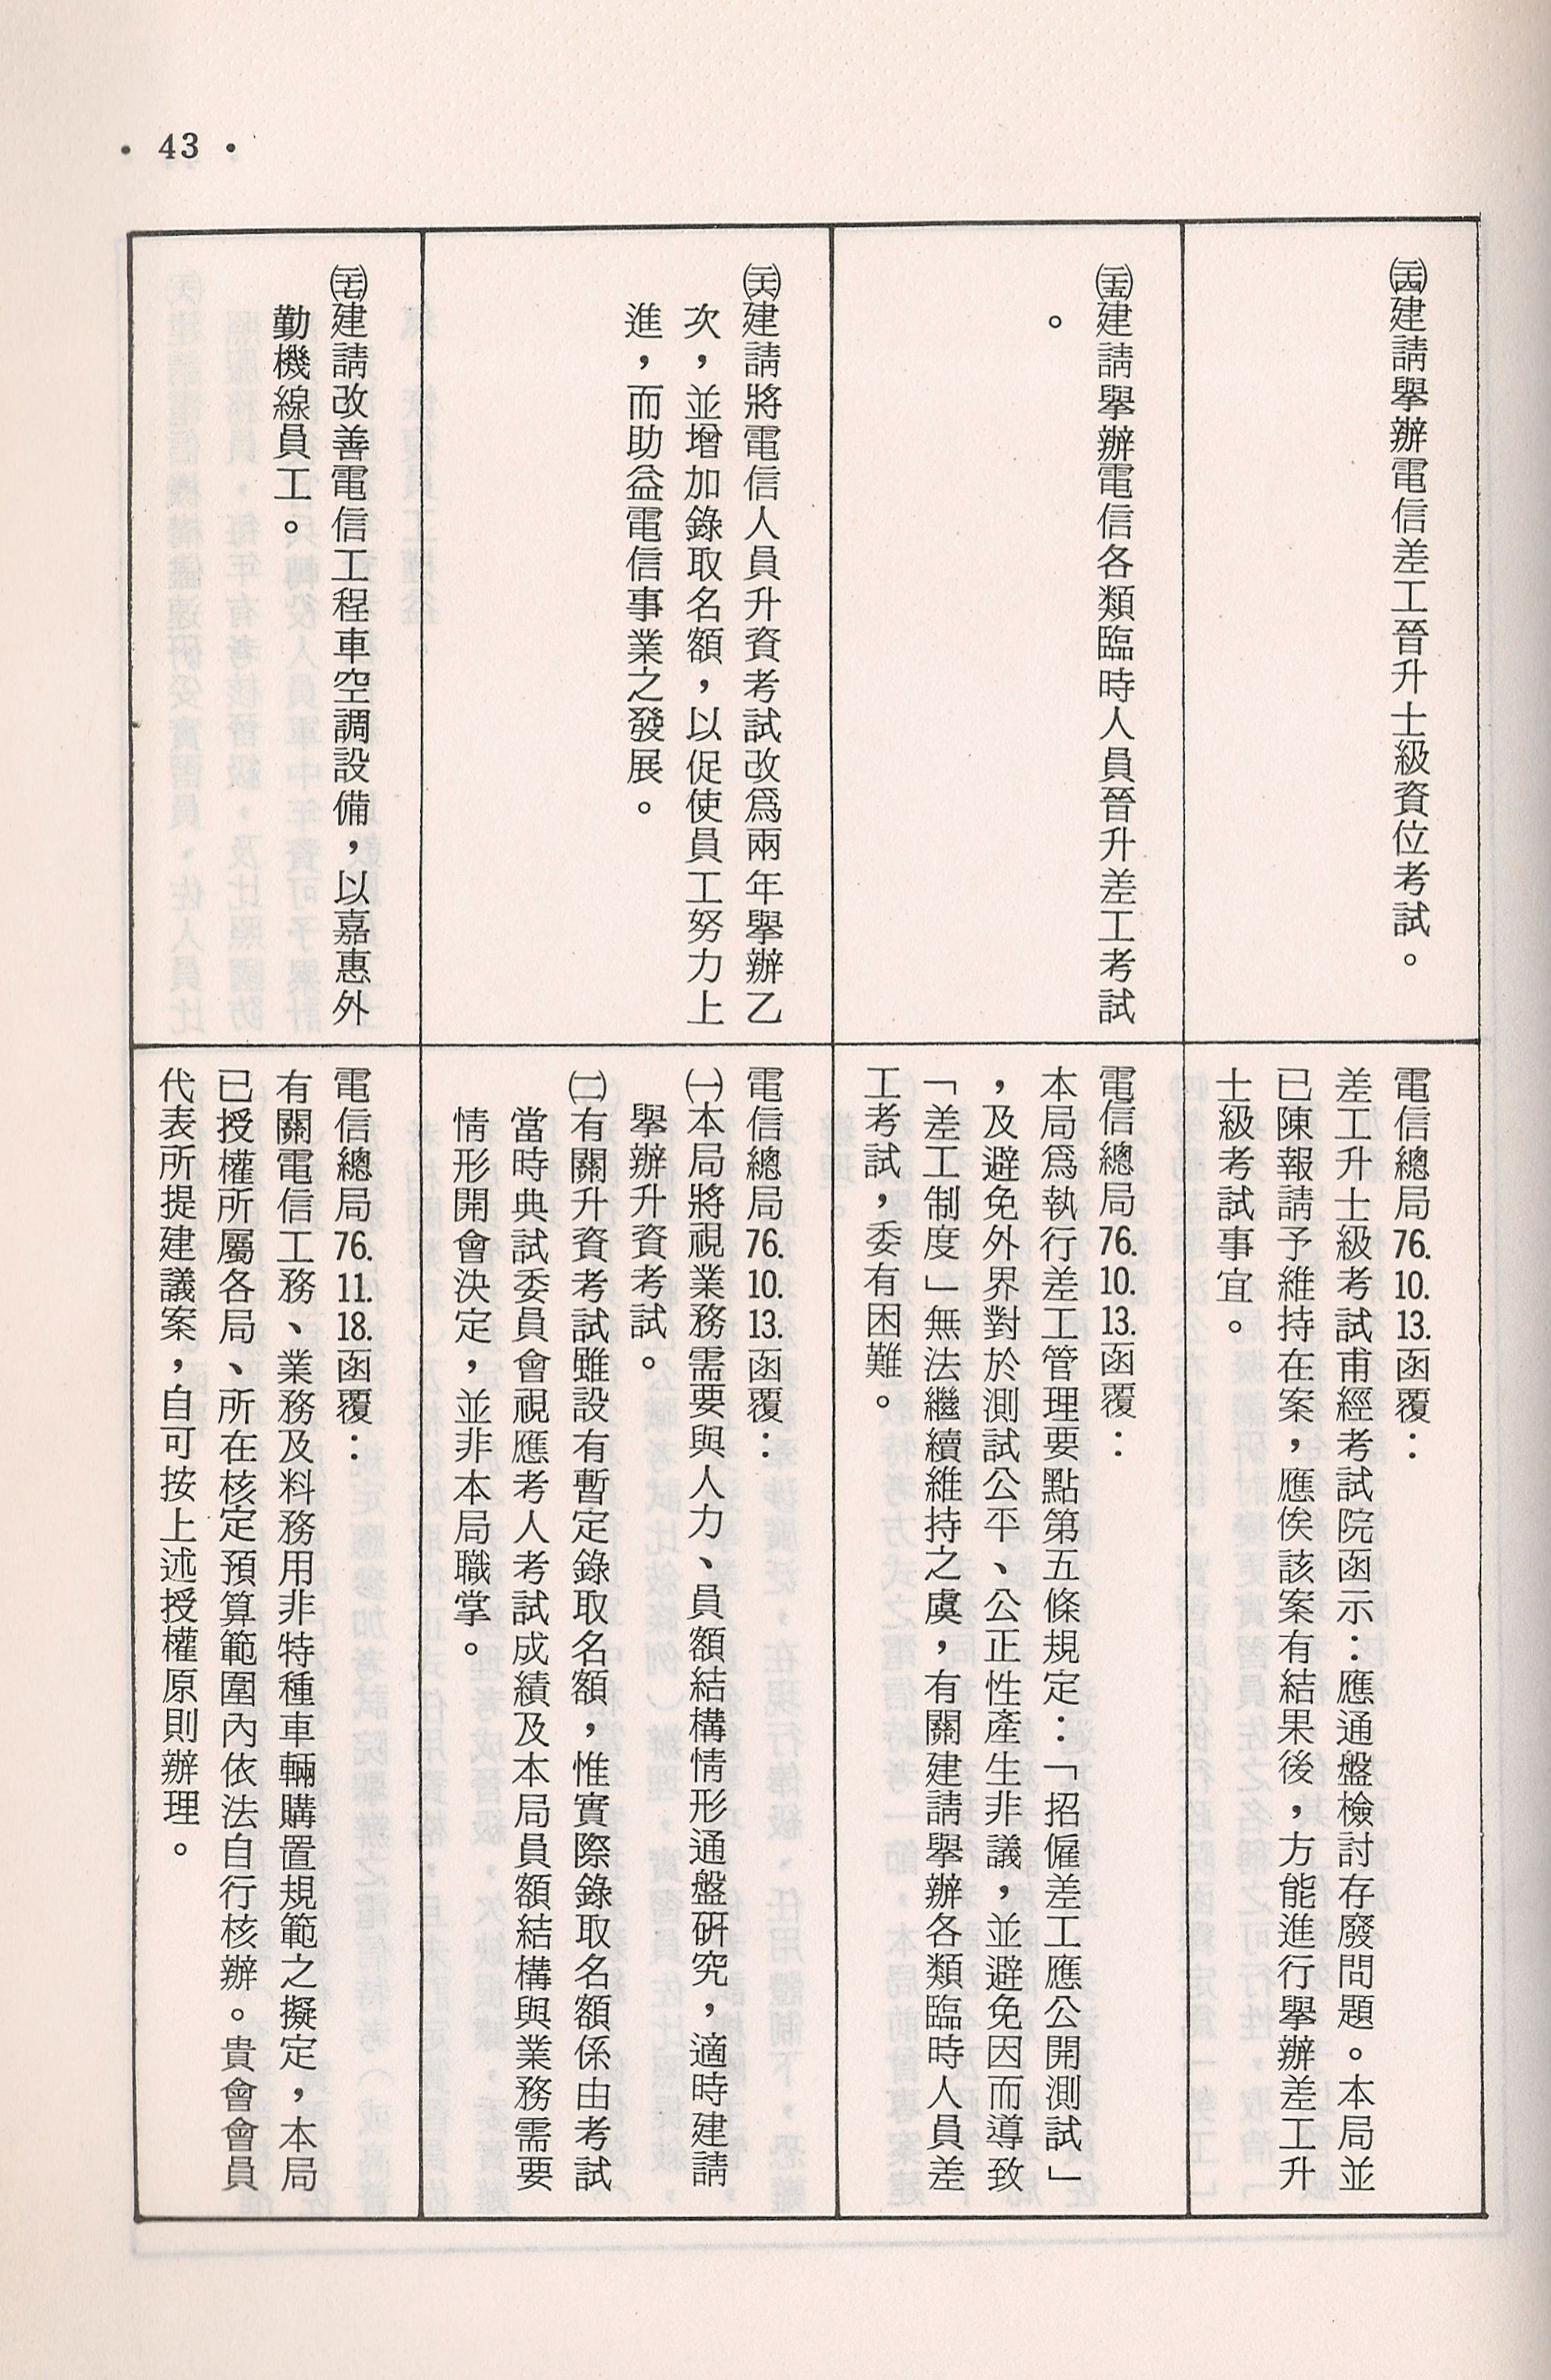 • 43 •
㈣建請舉辦電信差工晉升士級資位考試。
電信總局76.10.13.函覆：
差工升士級考試甫經考試院函示：應通盤檢討存廢問題。本局並
已陳報請予維持在案，應俟該案有結果後，方能進行舉辦差工升
士級考試事宜。
㈤建請舉辦電信各類臨時人員晉升差工考試
。
電信總局76.10.13.函覆：
本局爲執行差工管理要點第五條規定：「招僱差工應公開測試」
，及避免外界對於測試公平、公正性產生非議，並避免因而導致
「差工制度」無法繼續維持之虞，有關建請舉辦各類臨時人員差
工考試，委有困難。
㈥建請將電信人員升資考試改爲兩年舉辦乙
次，並增加錄取名額，以促使員工努力上
進，而助益電信事業之發展。
電信總局76.10.13.函覆：
㈠本局將視業務需要與人力、員額結構情形通盤研究，適時建請
舉辦升資考試。
㈡有關升資考試雖設有暫定錄取名額，惟實際錄取名額係由考試
當時典試委員會視應考人考試成績及本局員額結構與業務需要
情形開會決定，並非本局職掌。
㈦建請改善電信工程車空調設備，以嘉惠外
勤機線員工。
電信總局76.11.18.函覆：
有關電信工務、業務及料務用非特種車輛購置規範之擬定，本局
已授權所屬各局、所在核定預算範圍內依法自行核辦。貴會會員
代表所提建議案，自可按上述授權原則辦理。